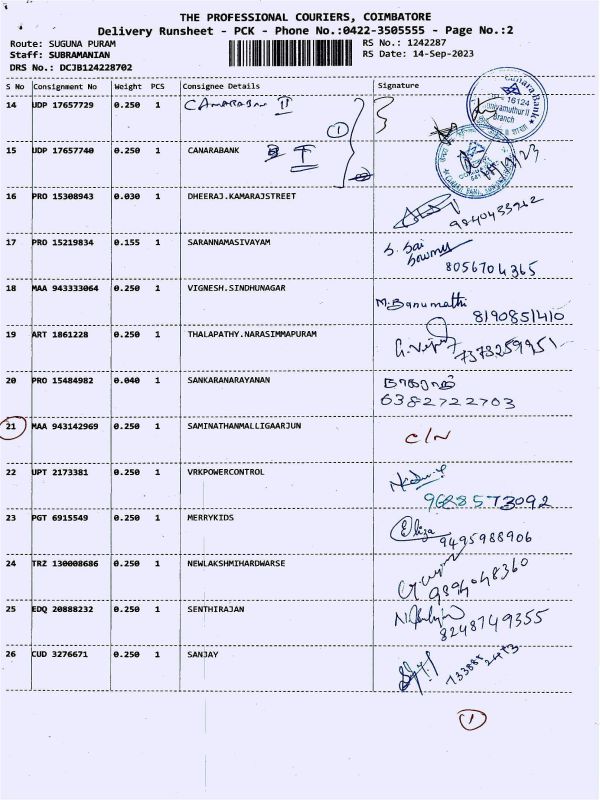 THE PROFESSIONAL COURIERS, COIMBATORE
Delivery Runsheet - PCK - Phone No.:0422-3505555 - Page No.:2
Route: SUGUNA PURAM RS No.: 1242287
Staff: SUBRAMANIAN RS Date: 14-Sep-2023
DRS No.: DCJB124228702
S No Consignment No Weight PCS Consignee Details Signature
14 UDP 17657729 0.250 1 II
Canara Bank
16124
Branch
15 UDP 17657740 0.250 1 CANARABANK I
1
16 PRO 15308943 0.030 1 DHEERAJ.KAMARAJSTREET
9840433942
17 PRO 15219834 0.155 1 SARANNAMASIVAYAM S. Sai
8056704365
18 MAA 943333064 0.250 1 VIGNESH.SINDHUNAGAR M. Banumathi
8190851410
19 ART 1861228 0.250 1 THALAPATHY.NARASIMMAPURAM
7373259951
20 PRO 15484982 0.040 1 SANKARANARAYANAN நாகராஜ்
6382722703
21 MAA 943142969 0.250 1 SAMINATHANMALLIGAARJUN C/N
22 UPT 2173381 0.250 1 VRKPOWERCONTROL
9688573092
23 PGT 6915549 0.250 1 MERRYKIDS Eliza
9495988906
24 TRZ 130008686 0.250 1 NEWLAKSHMIHARDWARSE
9894048360
25 EDQ 20888232 0.250 1 SENTHIRAJAN
8248749355
26 CUD 3276671 0.250 1 SANJAY
1